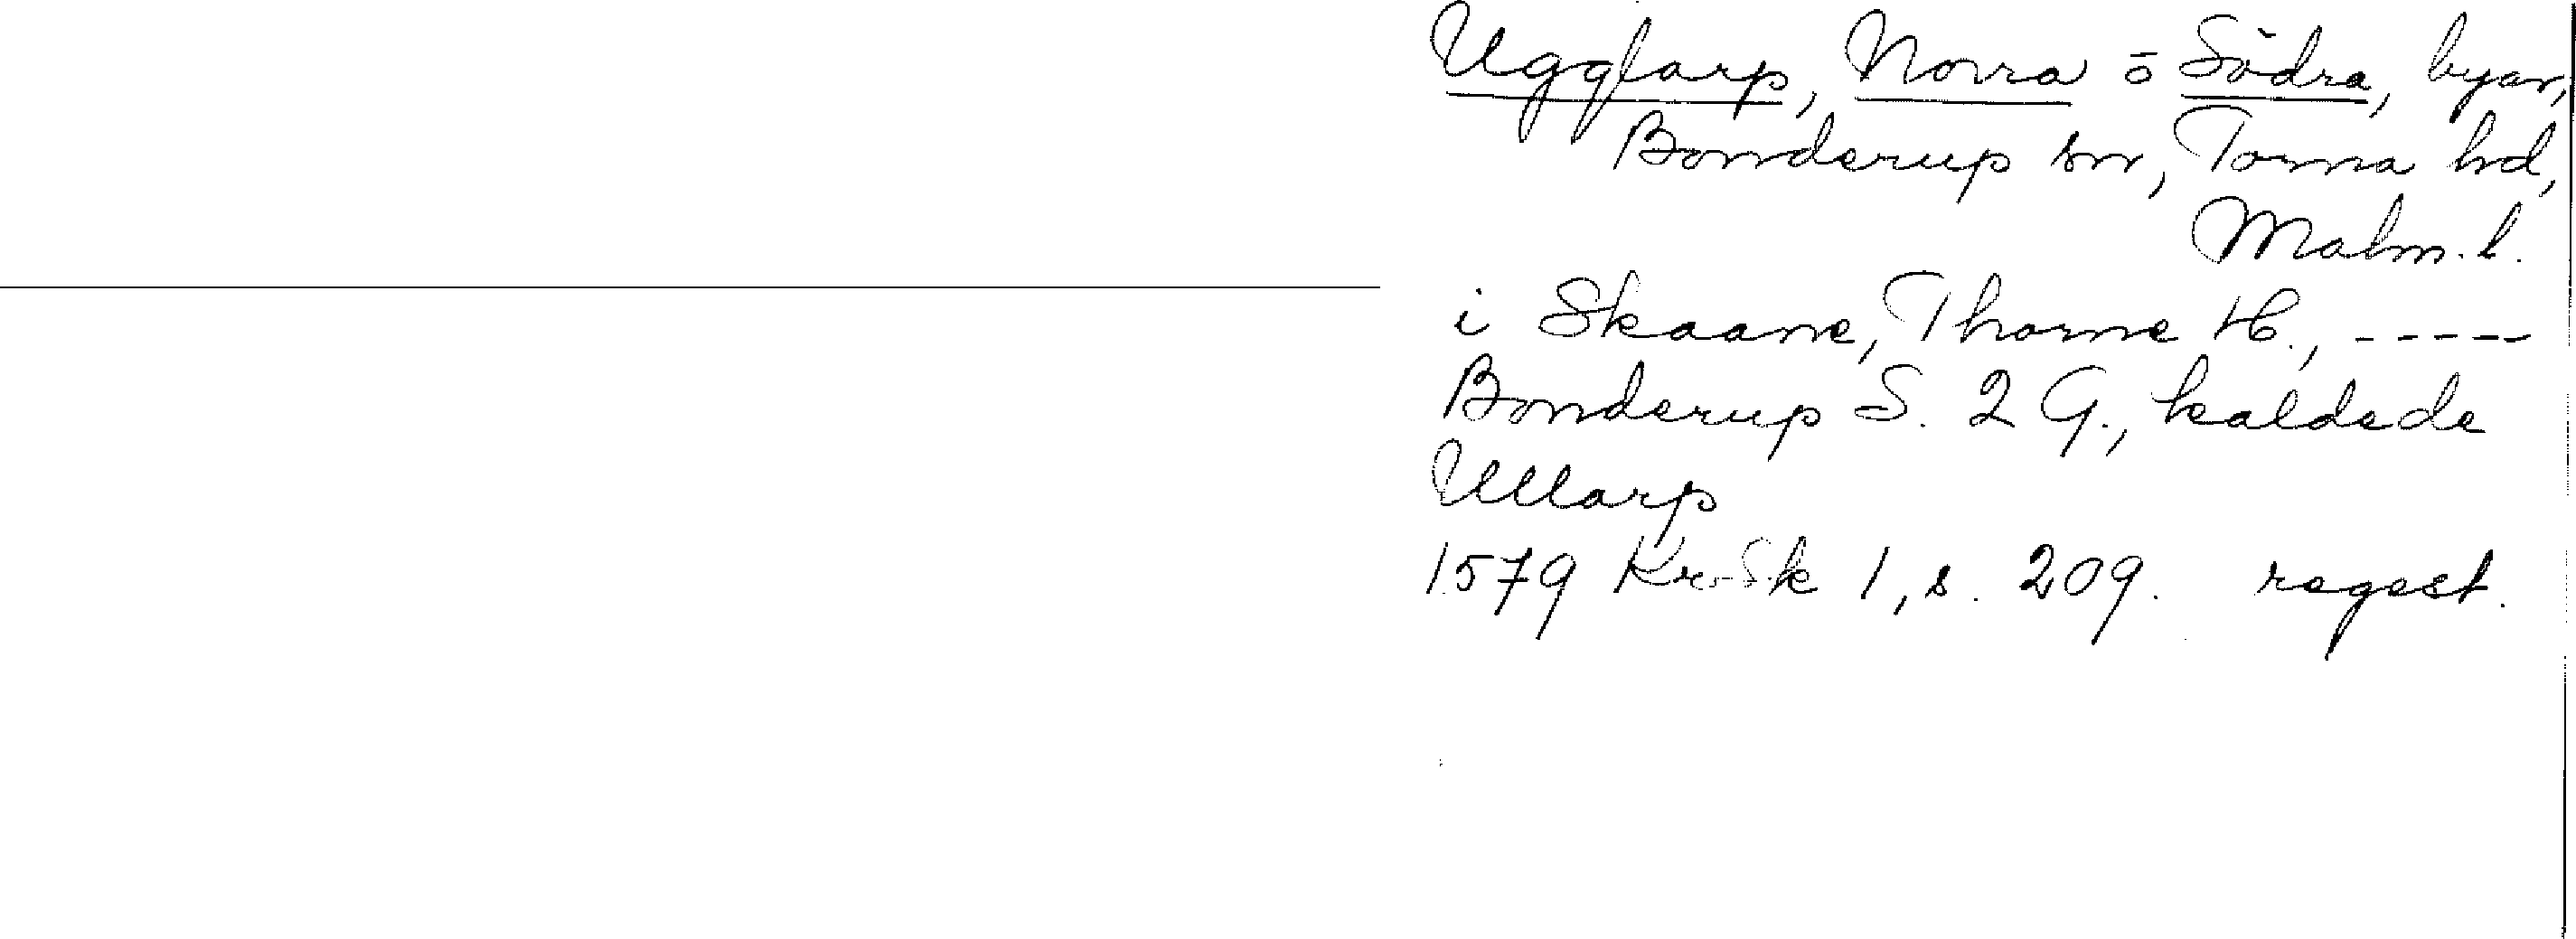 Ugglarp, Norra o Södra, byar,
Bonderup sn, Torna hd,
Malm. l.
i Skaane, Thorne H., -----
Bonderup S. 2 G., kaldede
Ullarp
1579 Kr Sk 1, s. 209. regest.